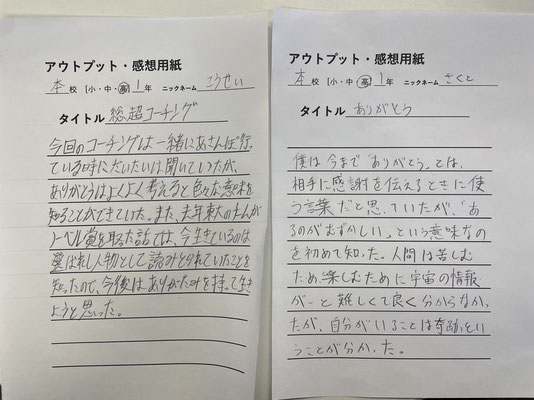 アウトプット・感想用紙
本 校 [小・中・高] 1 年 ニックネーム こうせい
タイトル 総超コーチング
今回のコーチングは一緒にあさんぽ行っ
ている時にだいたいは聞いていたが、
ありがとうはよくよく考えると色々な意味を
知ることができていた。また、去年東大の
ノーベル賞を取った話では、今生きているのは
選ばれし人物として読みとられていたことを
知ったので、今後はありがたみを持って生き
ようと思った。
アウトプット・感想用紙
本 校 [小・中・高] 1 年 ニックネーム さくと
タイトル ありがとう
僕は今まで「ありがとう」とは、
相手に感謝を伝えるときに使
う言葉だと思っていたが、「あ
るのがむずかしい」という意味なの
を初めて知った。人間は苦しむ
ために楽しむために宇宙の情報
が…と難しくて良く分からなかっ
たが、自分がいることは奇跡とい
うことが分かった。